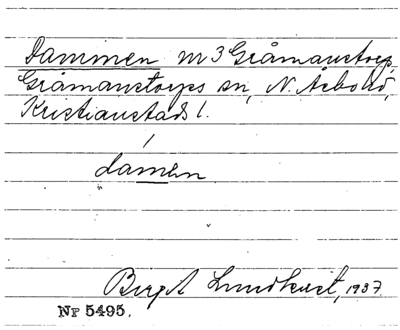 Dammen m 3 Gråmanstorp,
Gråmanstorps sn, N. Åsbo hd,
Kristianstads l.
damen
Birgit Lundkvist, 1937
Nr 5495.